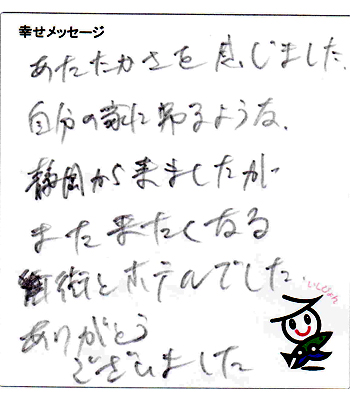 幸せメッセージ
あたたかさを感じました。
自分の家に帰るような、
静岡から来ましたが
また来たくなる
街とホテルでした。
いしじゃん
ありがとう
ございました